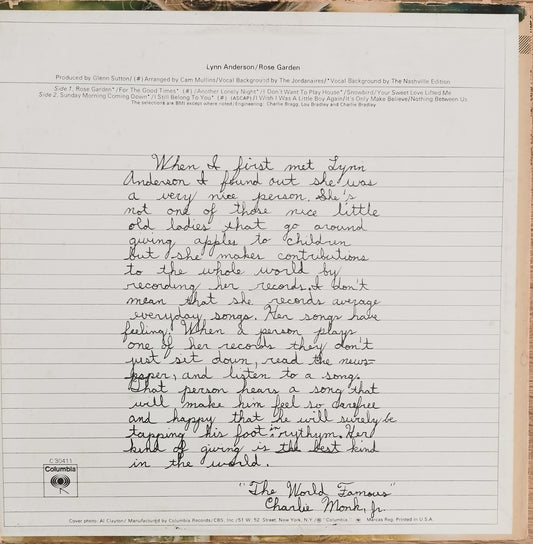 Lynn Anderson/Rose Garden
Produced by Glenn Sutton/(#) Arranged by Cam Mullins/Vocal Background by The Jordanaires/*Vocal Background by The Nashville Edition
Side 1. Rose Garden*/For The Good Times* (#)/Another Lonely Night*/I Don't Want To Play House*/Snowbird/Your Sweet Love Lifted Me
Side 2. Sunday Morning Coming Down*/I Still Belong To You* (#) (ASCAP)/I Wish I Was A Little Boy Again/It's Only Make Believe/Nothing Between Us
The selections are BMI except where noted/Engineering: Charlie Bragg, Lou Bradley and Charlie Bradley
When I first met Lynn
Anderson I found out she was
a very nice person. She's
not one of those nice little
old ladies that go around
giving apples to children
but she makes contributions
to the whole world by
recording her records. I don't
mean that she records average
everyday songs. Her songs have
feeling. When a person plays
one of her records they don't
just sit down, read the news=
paper, and listen to a song.
That person hears a song that
will make him feel so carefree
and happy that he will surely be
tapping his foot in rythym. Her
kind of giving is the best kind
in the world.
"The World Famous"
Charlie Monk, Jr.
C 30411
Columbia
Cover photo: Al Clayton/Manufactured by Columbia Records/CBS, Inc./51 W. 52 Street, New York, N.Y./® "Columbia," Marcas Reg. Printed in U.S.A.